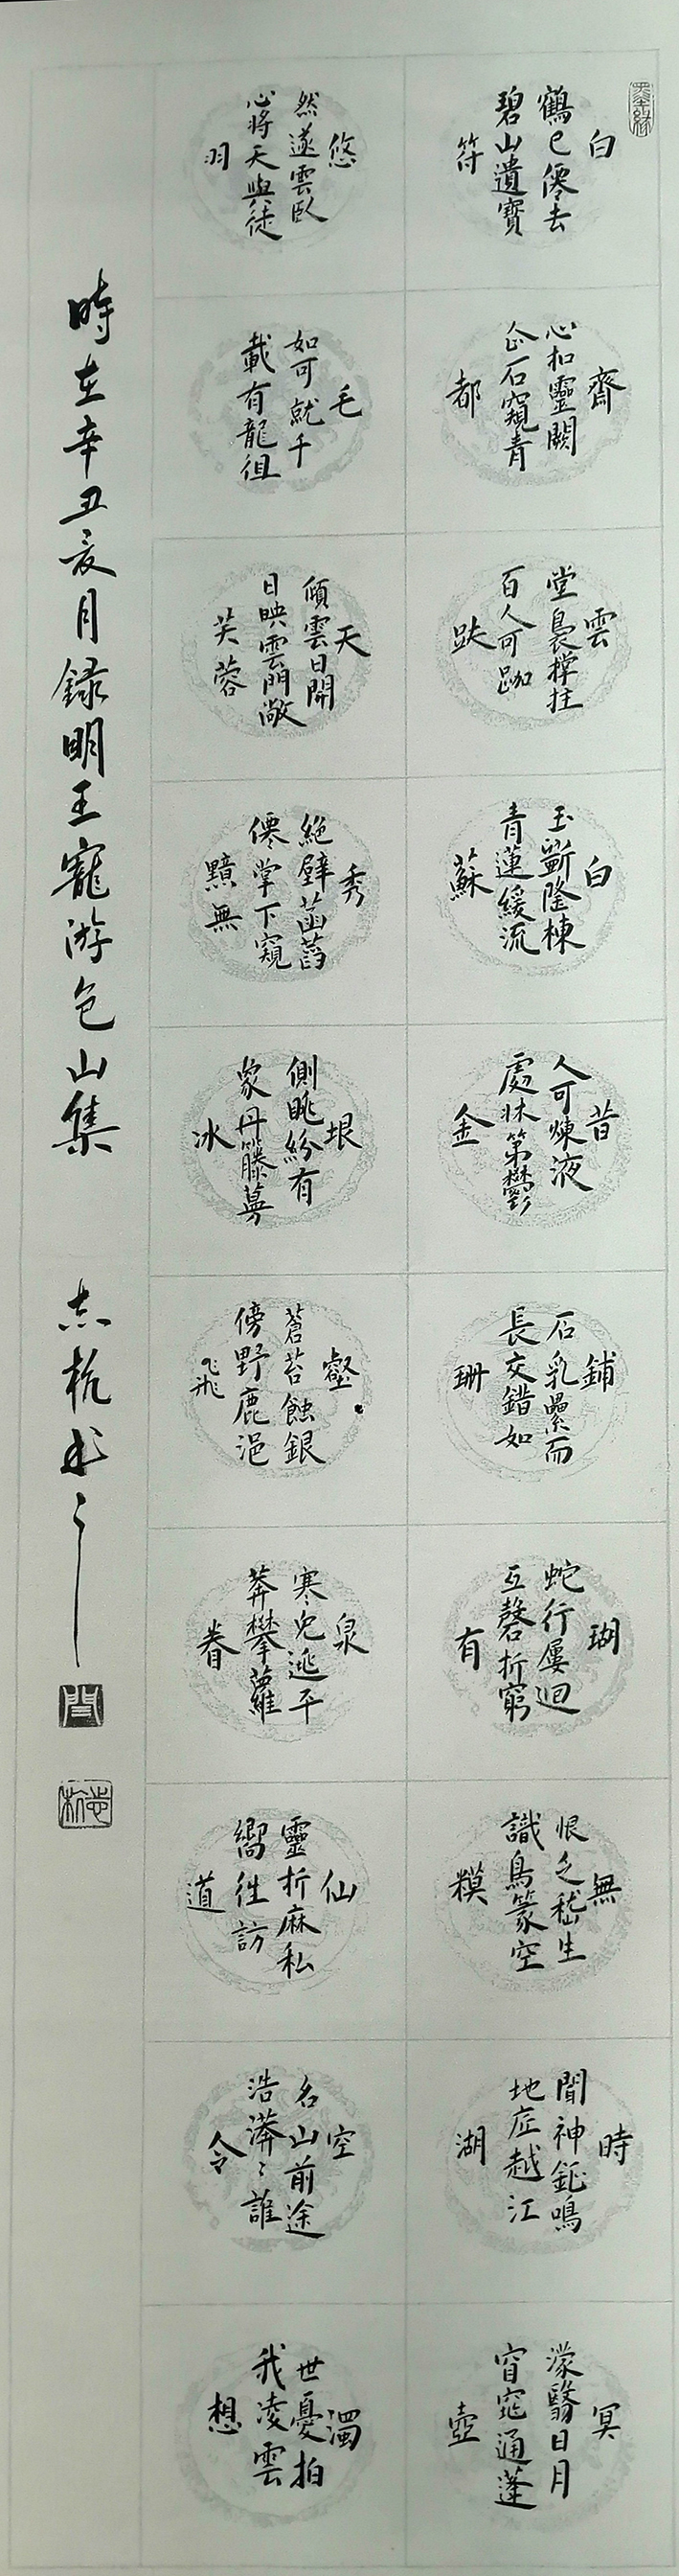 白
鶴已僊去
碧山遺寶
符
齋
心扣靈闕
企石窺青
都
雲
堂裊撐拄
百人可跏
趺
白
玉嶄隆棟
青蓮緩流
蘇
昔
人可煉液
處牀第鬱
金
鋪
石乳纍而
長交錯如
珊
瑚
蛇行屢迴
互磬折窮
有
無
恨乏嵇生
識鳥篆空
模
時
聞神鉦鳴
地底越江
湖
冥
濛翳日月
窅窕通蓬
壺
悠
然遂雲臥
心將天與徒
羽
毛
如可就千
載有龍徂
天
傾雲日開
日映雲門敞
芙蓉
秀
絕壁菡萏
僊掌下窺
黷無
垠
側眺紛有
象丹籐蔓
冰
壑
蒼苔蝕銀
傍野鹿浥
飛
泉
寒兕逃平
莽攀蘿
眷
仙
靈折麻私
嚮往訪
道
空
名山前途
浩漭〻誰
令
濁
世憂拍
我凌雲
想
時在辛丑亥月録明王寵游包山集
志杭书之